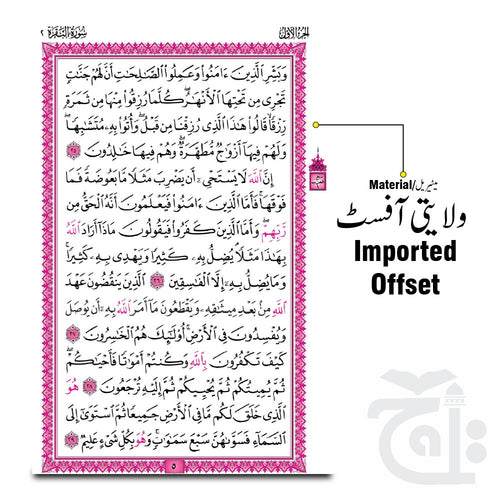 الجزء الأول
سورة البقرة ٢
وَبَشِّرِ ٱلَّذِينَ ءَامَنُوا۟ وَعَمِلُوا۟ ٱلصَّـٰلِحَـٰتِ أَنَّ لَهُمْ جَنَّـٰتٍ
تَجْرِى مِن تَحْتِهَا ٱلْأَنْهَـٰرُ ۖ كُلَّمَا رُزِقُوا۟ مِنْهَا مِن ثَمَرَةٍ
رِّزْقًا ۙ قَالُوا۟ هَـٰذَا ٱلَّذِى رُزِقْنَا مِن قَبْلُ ۖ وَأُتُوا۟ بِهِۦ مُتَشَـٰبِهًا ۖ
وَلَهُمْ فِيهَآ أَزْوَٰجٌ مُّطَهَّرَةٌ ۖ وَهُمْ فِيهَا خَـٰلِدُونَ ٢٥
إِنَّ ٱللَّهَ لَا يَسْتَحْىِۦٓ أَن يَضْرِبَ مَثَلًا مَّا بَعُوضَةً فَمَا
فَوْقَهَا ۚ فَأَمَّا ٱلَّذِينَ ءَامَنُوا۟ فَيَعْلَمُونَ أَنَّهُ ٱلْحَقُّ مِن
رَّبِّهِمْ ۖ وَأَمَّا ٱلَّذِينَ كَفَرُوا۟ فَيَقُولُونَ مَاذَآ أَرَادَ ٱللَّهُ
بِهَـٰذَا مَثَلًا ۘ يُضِلُّ بِهِۦ كَثِيرًا وَيَهْدِى بِهِۦ كَثِيرًا ۚ
وَمَا يُضِلُّ بِهِۦٓ إِلَّا ٱلْفَـٰسِقِينَ ٢٦ ٱلَّذِينَ يَنقُضُونَ عَهْدَ
ٱللَّهِ مِنۢ بَعْدِ مِيثَـٰقِهِۦ وَيَقْطَعُونَ مَآ أَمَرَ ٱللَّهُ بِهِۦٓ أَن يُوصَلَ
وَيُفْسِدُونَ فِى ٱلْأَرْضِ ۚ أُو۟لَـٰٓئِكَ هُمُ ٱلْخَـٰسِرُونَ ٢٧
كَيْفَ تَكْفُرُونَ بِٱللَّهِ وَكُنتُمْ أَمْوَٰتًا فَأَحْيَـٰكُمْ ۖ
ثُمَّ يُمِيتُكُمْ ثُمَّ يُحْيِيكُمْ ثُمَّ إِلَيْهِ تُرْجَعُونَ ٢٨ هُوَ
ٱلَّذِى خَلَقَ لَكُم مَّا فِى ٱلْأَرْضِ جَمِيعًا ثُمَّ ٱسْتَوَىٰٓ إِلَى
ٱلسَّمَآءِ فَسَوَّىٰهُنَّ سَبْعَ سَمَـٰوَٰتٍ ۚ وَهُوَ بِكُلِّ شَىْءٍ عَلِيمٌ ٢٩
٥
Material/میٹیریل
ولایتی آفسٹ
Imported
Offset